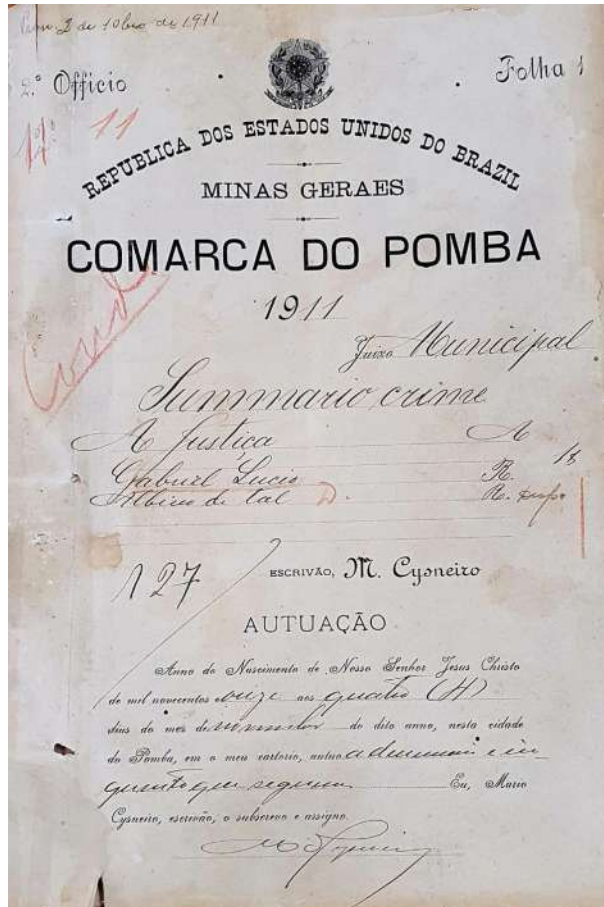 2 de 10bro de 1911
2.º Officio
Folha 1
11
REPUBLICA DOS ESTADOS UNIDOS DO BRAZIL
MINAS GERAES
COMARCA DO POMBA
1911
Juizo Municipal
Summario crime
A Justiça A
Gabriel Lucio R.
Albino de tal R.
127
ESCRIVÃO, M. Cysneiro
AUTUAÇÃO
Anno do Nascimento de Nosso Senhor Jesus Christo
de mil novecentos e onze aos quatro (4)
dias do mes de novembro do dito anno, nesta cidade
do Pomba, em o meu cartorio, autuo a denuncia e in-
querito que seguem. Eu, Mario
Cysneiro, escrivão, o subscrevo e assigno.